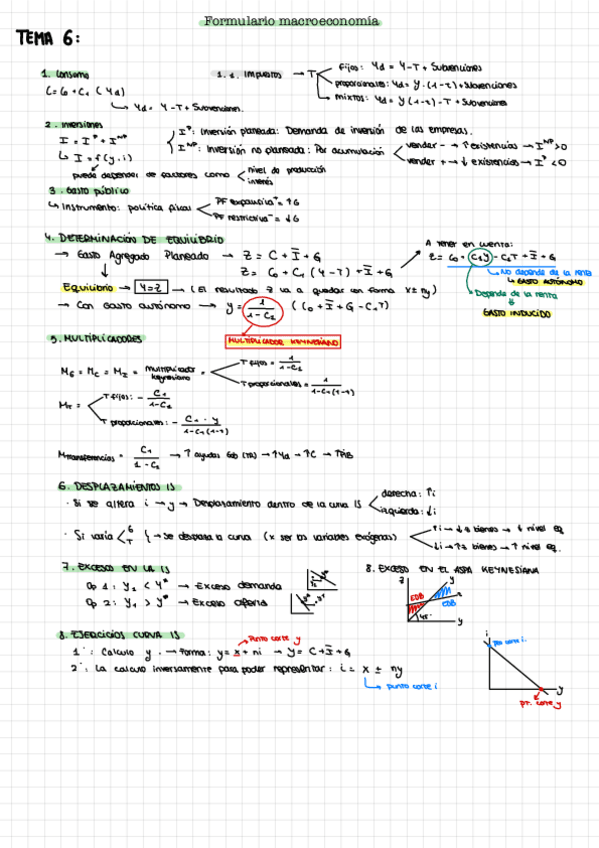 Formulario macroeconomía
TEMA 6:
1. Consumo
C = C₀ + C₁ (Yd)
↳ Yd = Y - T + Subvenciones.
1. 1. Impuestos → T
fijos: Yd = Y - T + Subvenciones
proporcionales: Yd = Y · (1-t) + Subvenciones
mixtos: Yd = Y (1-t) - T + Subvenciones
2. Inversiones
I = Iᴾ + Iᴺᴾ
↳ I = f (y, i)
puede depender de factores como
nivel de producción
interés
Iᴾ: Inversión planeada: Demanda de inversión de las empresas.
Iᴺᴾ: Inversión no planeada: Por acumulación
vender - → ↑ existencias → Iᴺᴾ > 0
vender + → ↓ existencias → Iᴾ < 0
3. Gasto público
↳ Instrumento: política fiscal
PF expansiva = ↑G
PF restrictiva = ↓G
4. DETERMINACIÓN DE EQUILIBRIO
→ Gasto Agregado Planeado → Z = C + Ī + G
Z = C₀ + C₁ (Y - T) + Ī + G
Equilibrio → Y = Z → (El resultado Z va a quedar con forma X ± ny)
→ Con Gasto autónomo → y = 1 / 1 - C₂ (C₀ + Ī + G - C₁T)
MULTIPLICADOR KEYNESIANO
A tener en cuenta:
Z = C₀ + C₁Y - C₂T + Ī + G
↳ No depende de la renta
↳ GASTO AUTÓNOMO
Depende de la renta
GASTO INDUCIDO
5. MULTIPLICADORES
M_G = M_C = M_I = multiplicador keynesiano =
T fijos = 1 / 1 - C₂
T proporcionales = 1 / 1 - C₁(1-t)
M_T =
T fijos: - C₁ / 1 - C₂
T proporcionales: - C₁ · y / 1 - C₁(1-t)
M transferencias = C₁ / 1 - C₂ → ↑ ayudas Gob (TR) → ↑Yd → ↑C → ↑PIB
6. DESPLAZAMIENTOS IS
· Si se altera i → y → Desplazamiento dentro de la curva IS
derecha: ↑i
izquierda: ↓i
· Si varía G T } → Se desplaza la curva (x ser las variables exógenas)
↑i → ↓ bienes → ↓ nivel eq.
↓i → ↑ bienes → ↑ nivel eq.
7. EXCESO EN LA IS
Op 1: Y₂ < Y* → Exceso demanda
Op 2: Y₁ > Y* → Exceso oferta
8. EXCESO EN EL ASPA KEYNESIANA
Z
y
EDB
EOB
45°
y
8. EJERCICIOS CURVA IS
Punto corte y
1º: Calculo y. → Forma: y = x + ni → y = C + Ī + G
2º: La calculo inversamente para poder representar: i = x ± ny
↳ punto corte i
i
pto corte i.
y
pt. corte y